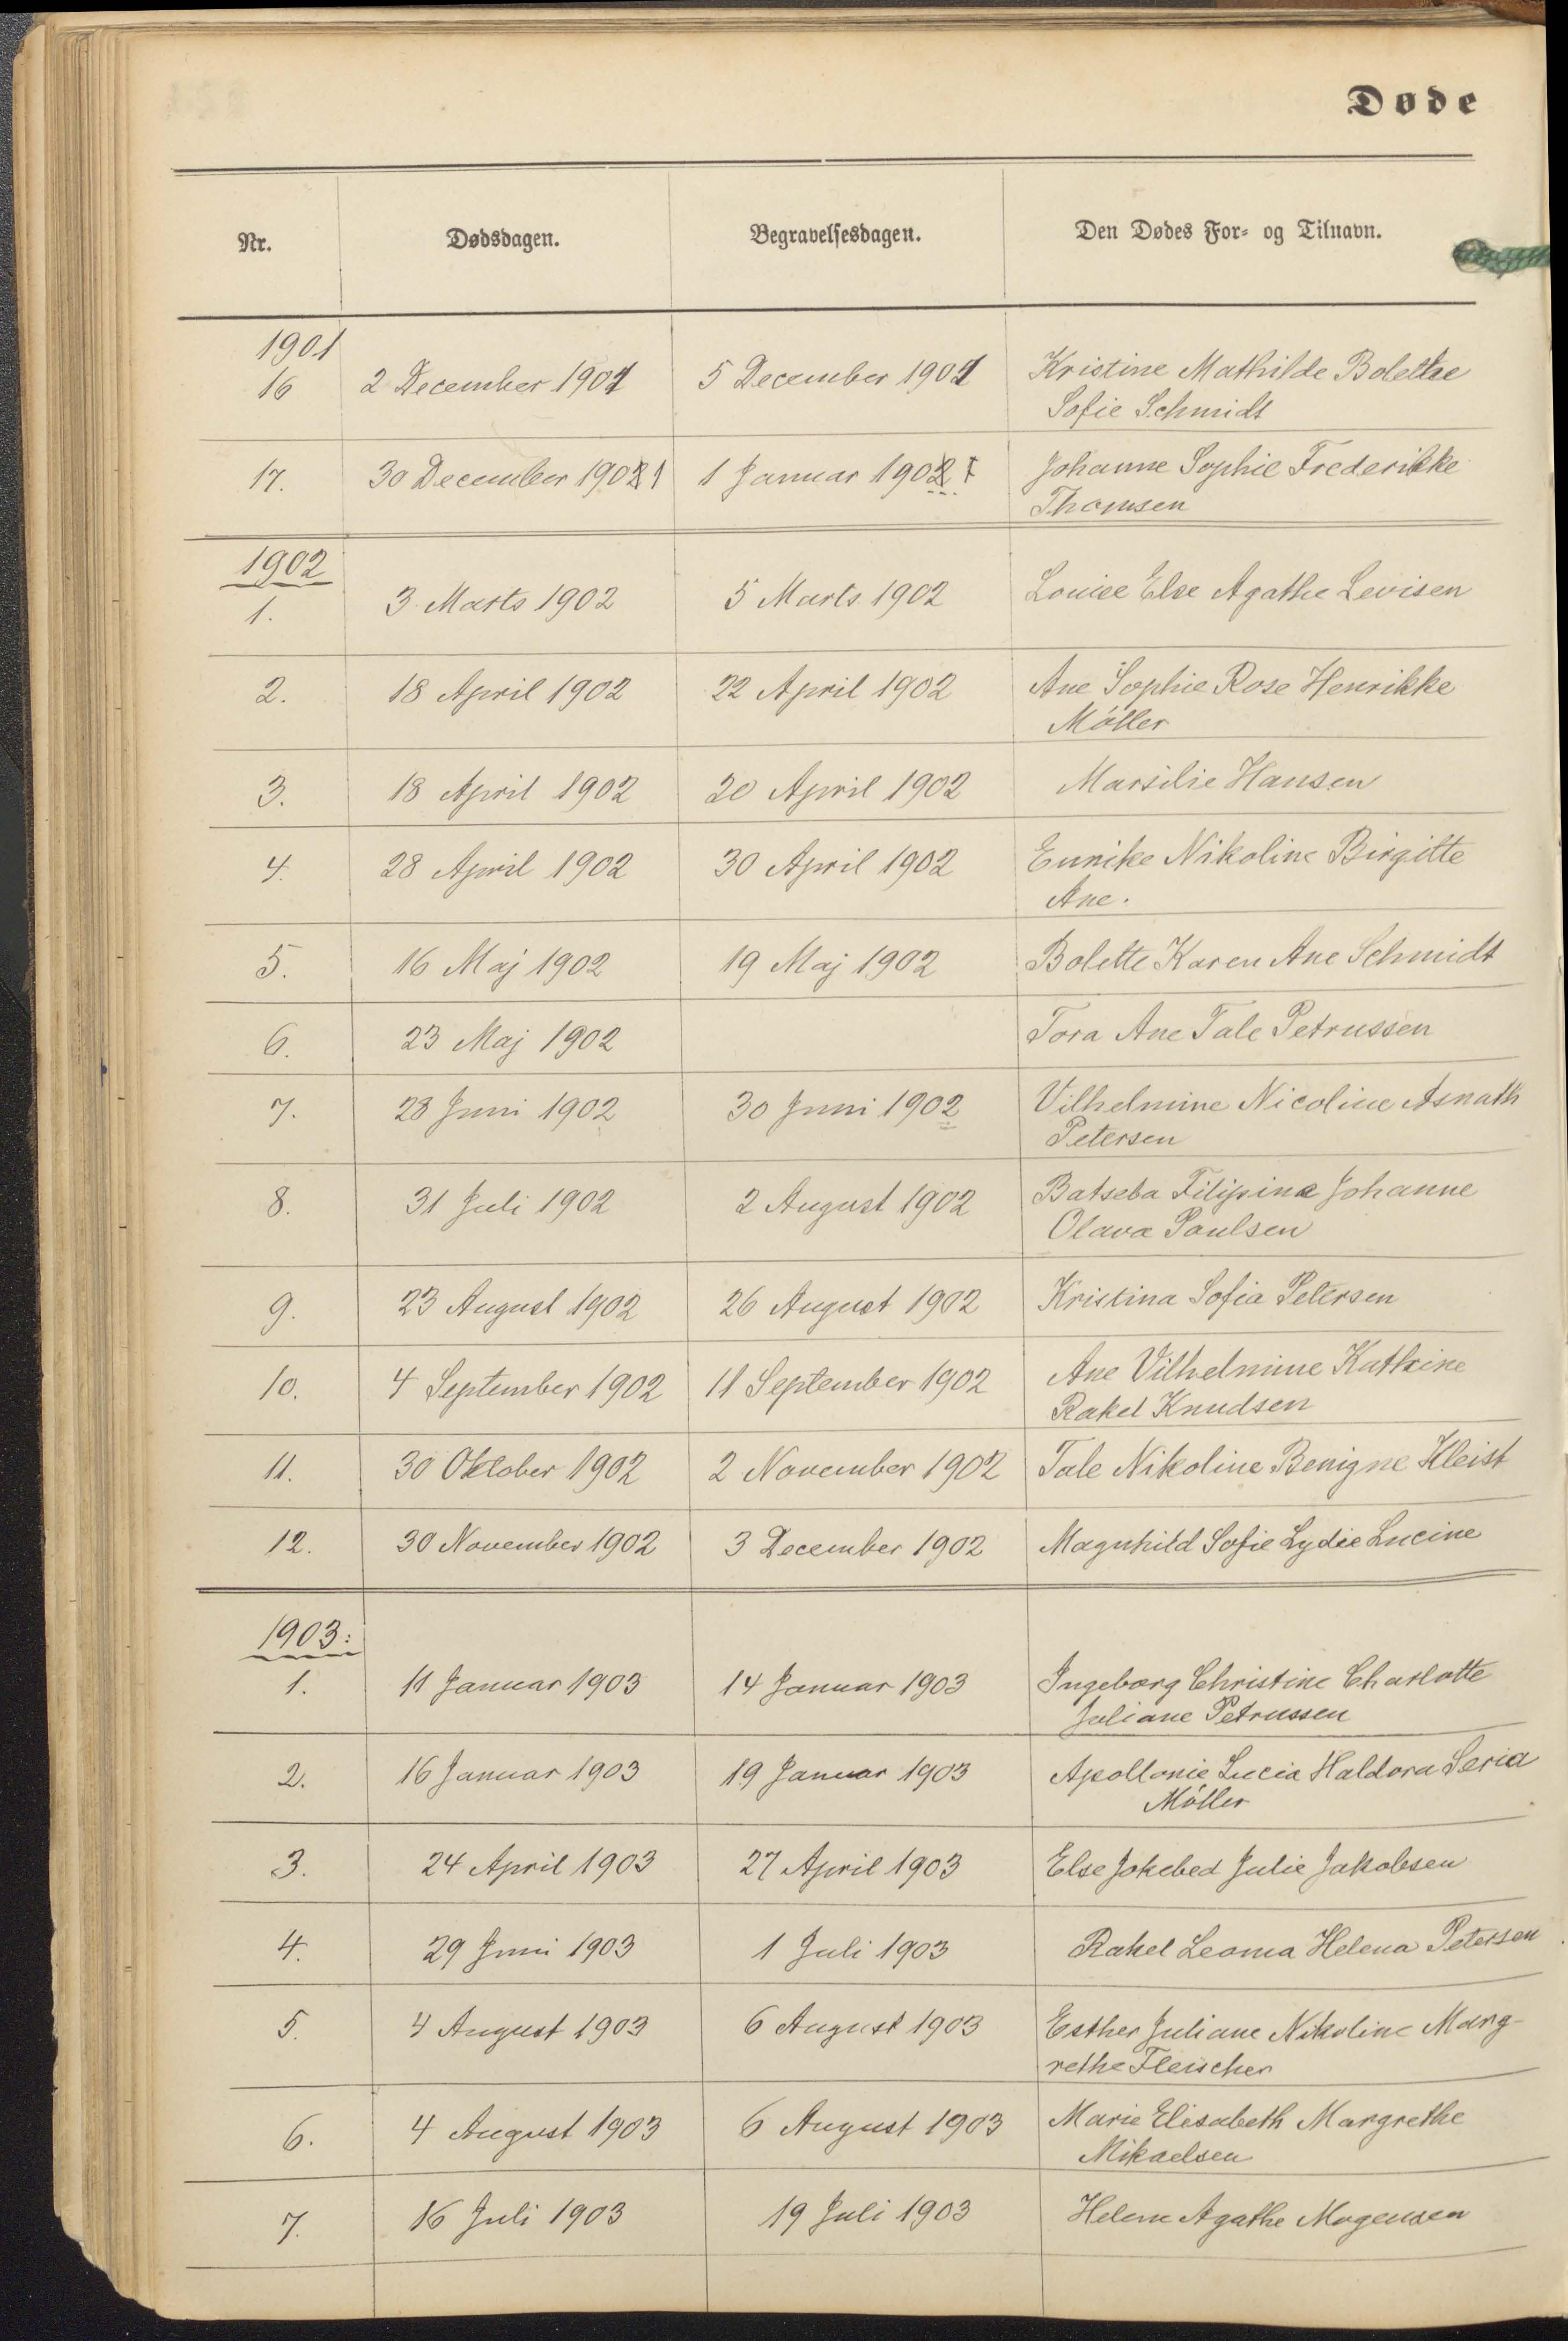 Døde
Nr. Dødsdagen. Begravelsesdagen. Den Dødes For- og Tilnavn.
1901
16 2 December 1901 5 December 1901 Kristine Mathilde Bolettæ
Sofie Schmidt
17. 30 December 1902 1 1 Januar 1902 Johanne Sophie Frederikke
Thomsen
1902
1. 3 Marts 1902 5 Marts 1902 Louise Else Agathe Levisen
2. 18 April 1902 22 April 1902 Ane Sophie Rose Henrikke
Móller
3. 18 April 1902 20 April 1902 Marsilie Hansen
4. 28 April 1902 30 April 1902 Eunike Nikoline Birgitte
Ane.
5. 16 Maj 1902 19 Maj 1902 Bolette Karen Ane Schmidt
6. 23 Maj 1902 Tora Ane Tale Petrussen
7. 28 Juni 1902 30 Juni 1902 Vilhelmine Nicoline Asnath
Petersen
8. 31 Juli 1902 2 August 1902 Batseba Filipina Johanne
Olava Poulsen
9. 23 August 1902 26 August 1902 Kristina Sofia Petersen
10. 4 September 1902 11 September 1902 Ane Vilhelmine Kathrine
Rakel Knudsen
11. 30 Oktober 1902 2 November 1902 Tale Nikoline Benigne Kleist
12. 30 November 1902 3 December 1902 Magnhild Sofie Lydie Lucine
1903:
1. 11 Januar 1903 14 Januar 1903 Ingeborg Christine Charlotte
Juliane Petrussen
2. 16 Januar 1903 19 Januar 1903 Apollonie Lucia Haldora Seria
Móller
3. 24 April 1903 27 April 1903 Else Jokebed Julie Jakobsen
4. 29 Juni 1903 1 Juli 1903 Rakel Leoma Helena Petersen
5. 4 August 1903 6 August 1903 Esther Juliane Nikoline Marg-
rethe Fleischer
6. 4 August 1903 6 August 1903 Marie Elisabeth Margrethe
Mikaelsen
7. 16 Juli 1903 19 Juli 1903 Helene Agathe Mogensen